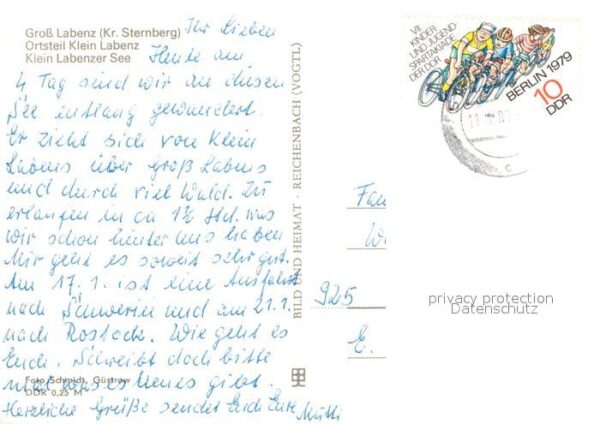 Groß Labenz (Kr. Sternberg)
Ortsteil Klein Labenz
Klein Labenzer See
Ihr Lieben
Heute am
4 Tag sind wir an diesen
See entlang gewandert.
Er zieht sich von Klein
Labens über groß Labens
und durch viel Wald. Zu
erlaufen in ca 1½ Std. was
wir schon hinter uns haben
Mir geht es soweit sehr gut.
Am 17.1. ist eine Ausfahrt
nach Schwerin und am 21.1.
nach Rostock. Wie geht es
Euch. Schreibt doch bitte
mal was es Neues gibt.
Herzliche Grüße sendet Euch Eure Mutti
Foto Schmidt, Güstrow
DDR 0,25 M
BILD UND HEIMAT · REICHENBACH (VOGTL)
VII.
KINDER
UND JUGEND
SPARTAKIADE
DER DDR
BERLIN 1979
10
DDR
Fam
925
E.
privacy protection
Datenschutz